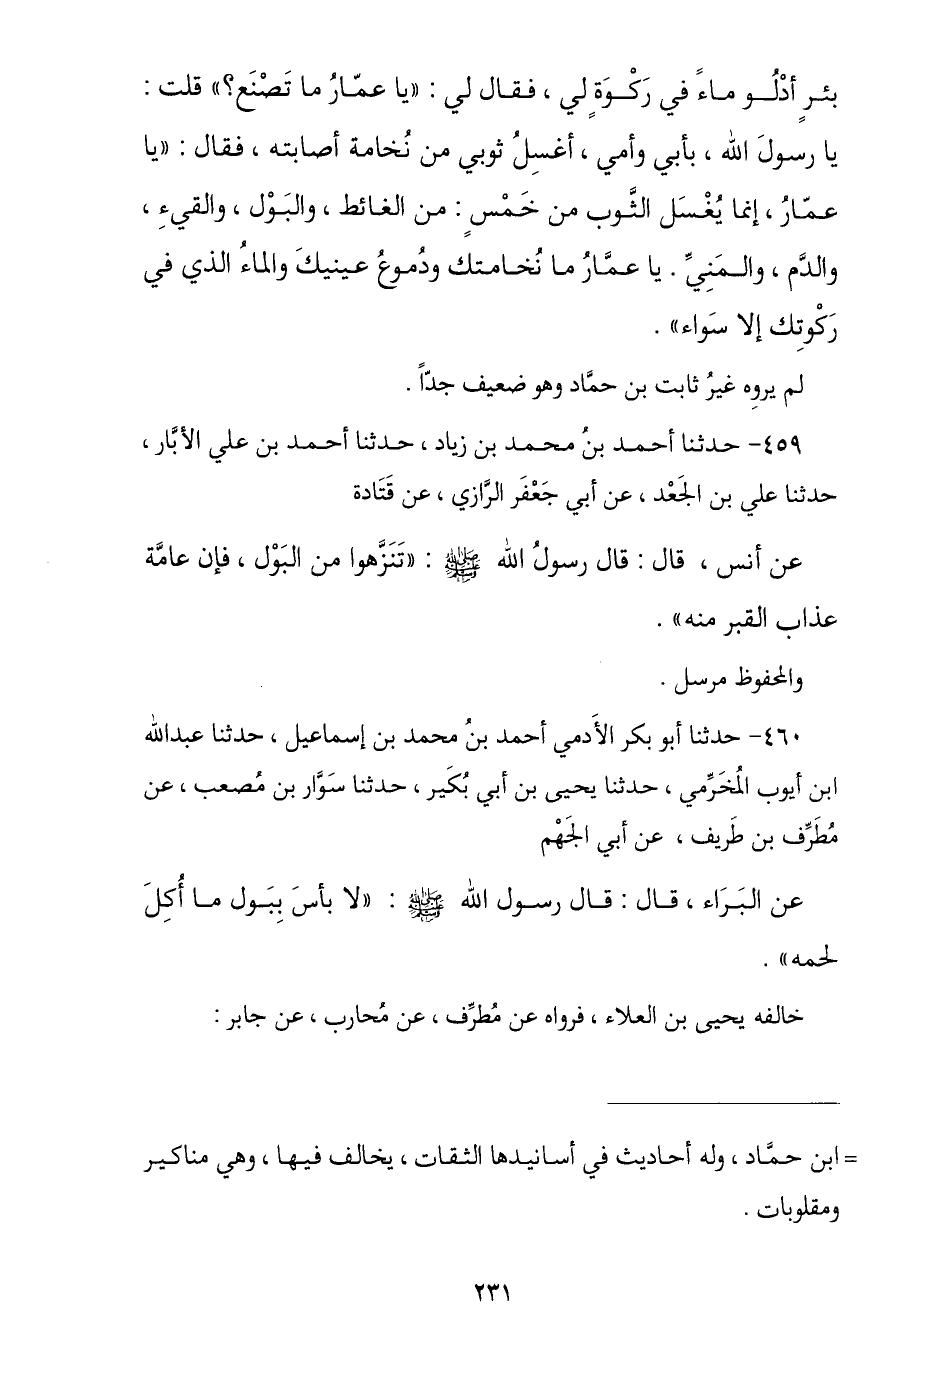 بئرٍ أدْلُــو مــاءً في رَكْــوَةٍ لي ، فـقــال لي : «يا عمّارُ ما تَصْنَع؟» قلت :
يا رسولَ الله ، بأبي وأمي ، أغسِلُ ثوبي من نُخامة أصابته ، فقال : «يا
عـمّـارُ ، إنما يُغْـسَـل الثَّـوب من خَـمْـسٍ : مـن الغـائط ، والبَـوْل ، والقيءِ ،
والدَّم ، والـمَنِيِّ . يا عـمَّـارُ ما نُخـامـتـك ودُمـوعُ عـينيكَ والماءُ الذي في
رَكْوتِك إلا سَواء» .
لم يروِه غيرُ ثابت بن حمَّاد وهو ضعيف جدّاً .
٤٥٩- حدثنا أحمـد بنُ محمـد بن زياد ، حدثنا أحمـد بن علي الأبَّار ،
حدثنا علي بن الجَعْد ، عن أبي جَعْفَر الرَّازي ، عن قَتَادة
عن أنس ، قال : قال رسولُ الله ﷺ : «تَنَزَّهوا من البَوْل ، فإن عامَّة
عذاب القبر منه» .
والمحفوظ مرسل .
٤٦٠- حدثنا أبو بكر الأدَمي أحمد بنُ محمد بن إسماعيل ، حدثنا عبدالله
ابن أيوب المُخَرِّمي ، حدثنا يحيى بن أبي بُكَير ، حدثنا سَوَّار بن مُصعب ، عن
مُطَرِّف بن طَريف ، عن أبي الجَهْم
عن البَـرَاء ، قـال : قـال رسـول الله ﷺ : «لا بأسَ بِبَـول مـا أُكِلَ
لحمه» .
خالفه يحيى بن العلاء ، فرواه عن مُطرِّف ، عن مُحارب ، عن جابر :
= ابن حـمَّـاد ، وله أحاديث في أسانيدها الثقات ، يخالف فيـهـا ، وهي مناكير
ومقلوبات .
٢٣١